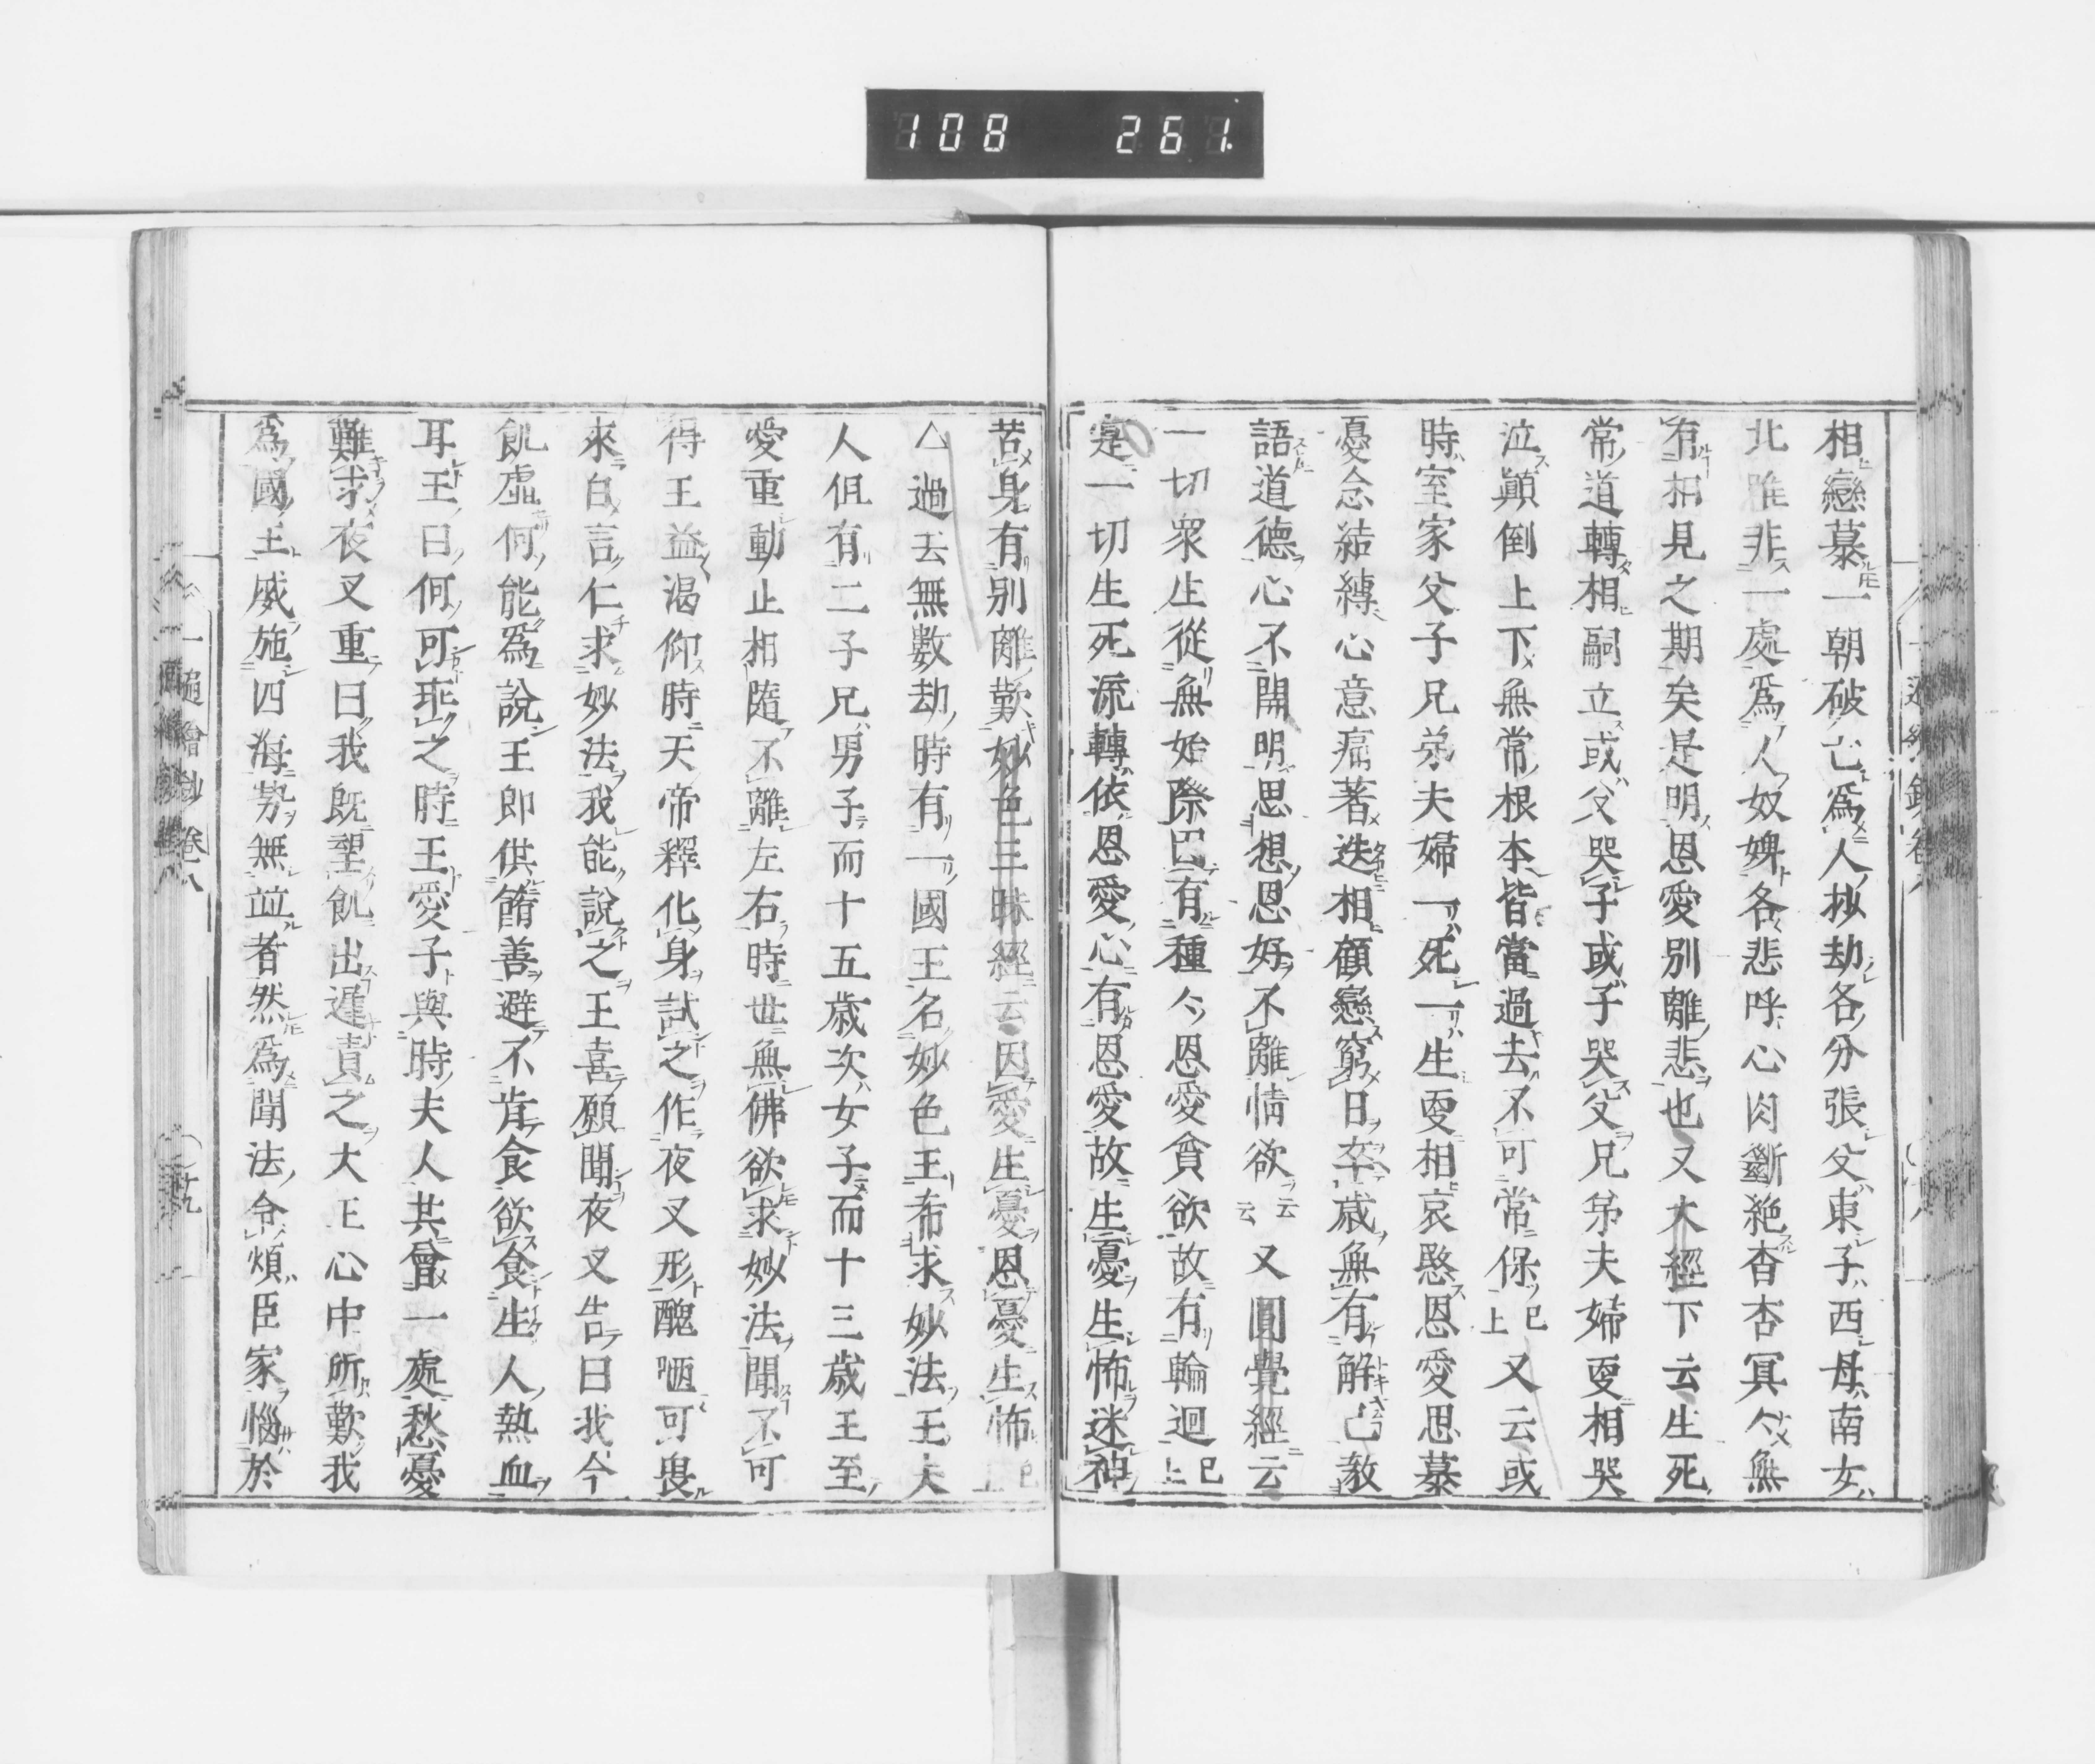 108 261.
相戀慕一朝破亡爲人抄劫各分張父東子西母南女
北唯非一處爲人奴婢各悲呼心肉斷絶杳杳冥人無
有相見之期矣是明恩愛別離悲也又大經下云生死
常道轉相嗣立或父哭子或子哭父兄弟夫婦更相哭
泣顚倒上下無常根本皆當過去不可常保已上又云或
時室家父子兄弟夫婦一死一生更相哀愍恩愛思慕
憂念結縛心意痛著迭相顧戀窮日卒歳無有解已教
語道德心不開明思想恩好不離情欲云云又圓覺經云
一切衆生從無始際已有種今恩愛貪欲故有輪迴已上
是一切生死流轉依恩愛心有恩愛故生憂生怖迷神
苦身有別離歎妙色三昧經云因愛生憂恩憂生怖已上
△過去無數劫時有一國王名妙色王希求妙法王夫
人但有二子兄男子而十五歳次女子而十三歳王至
愛重動止相隨不離左右時世無佛欲求妙法聞不可
得王益渴仰時天帝釋化身試之作夜叉形醜陋可畏
來白言仁求妙法我能說之王喜願聞夜叉告曰我今
飢虛何能爲說王即供餚善避不肯食欲食生人熱血
耳王曰何可取之時王愛子與時夫人共會一處愁憂
難求夜叉重曰我既望飢出遲責之大王心中所歎我
爲國王威施四海勢無並者然爲聞法令煩臣家惱於
卷八
十九